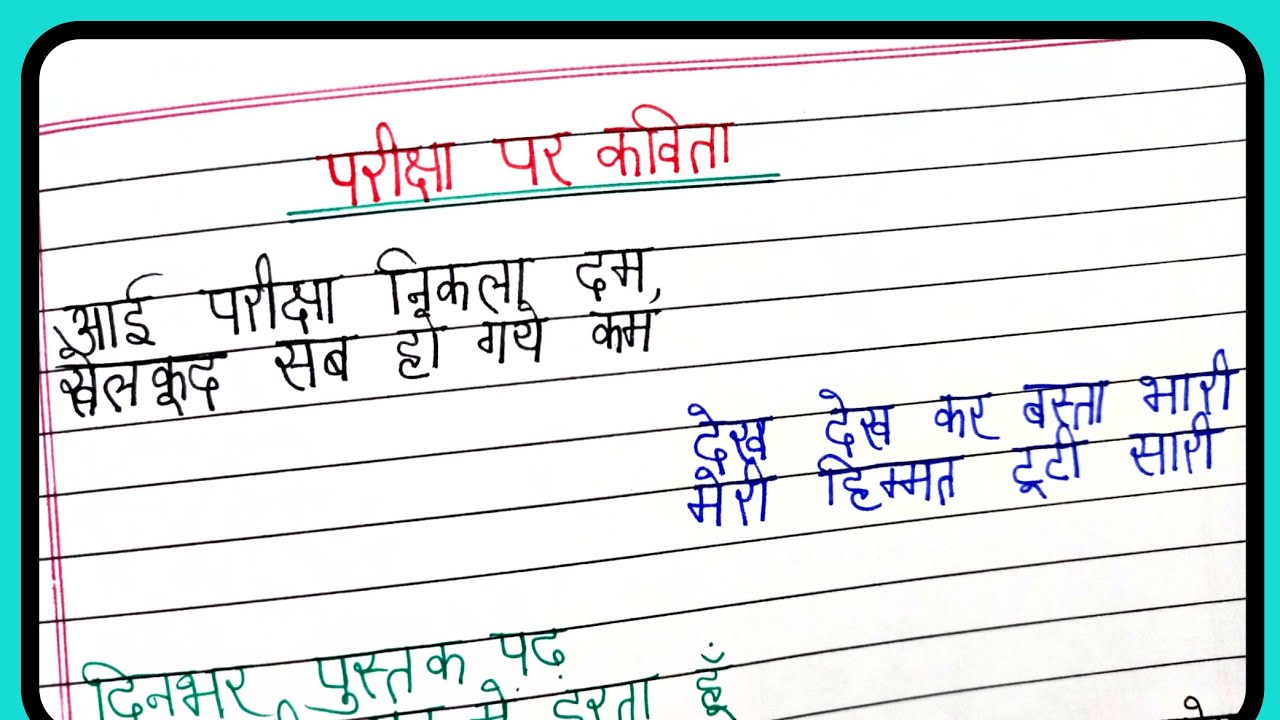 परीक्षा पर कविता
आई परीक्षा निकला दम,
खेलकूद सब हो गये कम
देख देख कर बस्ता भारी
मेरी हिम्मत टूटी सारी
दिनभर पुस्तक पढ़
में डरता हूँ